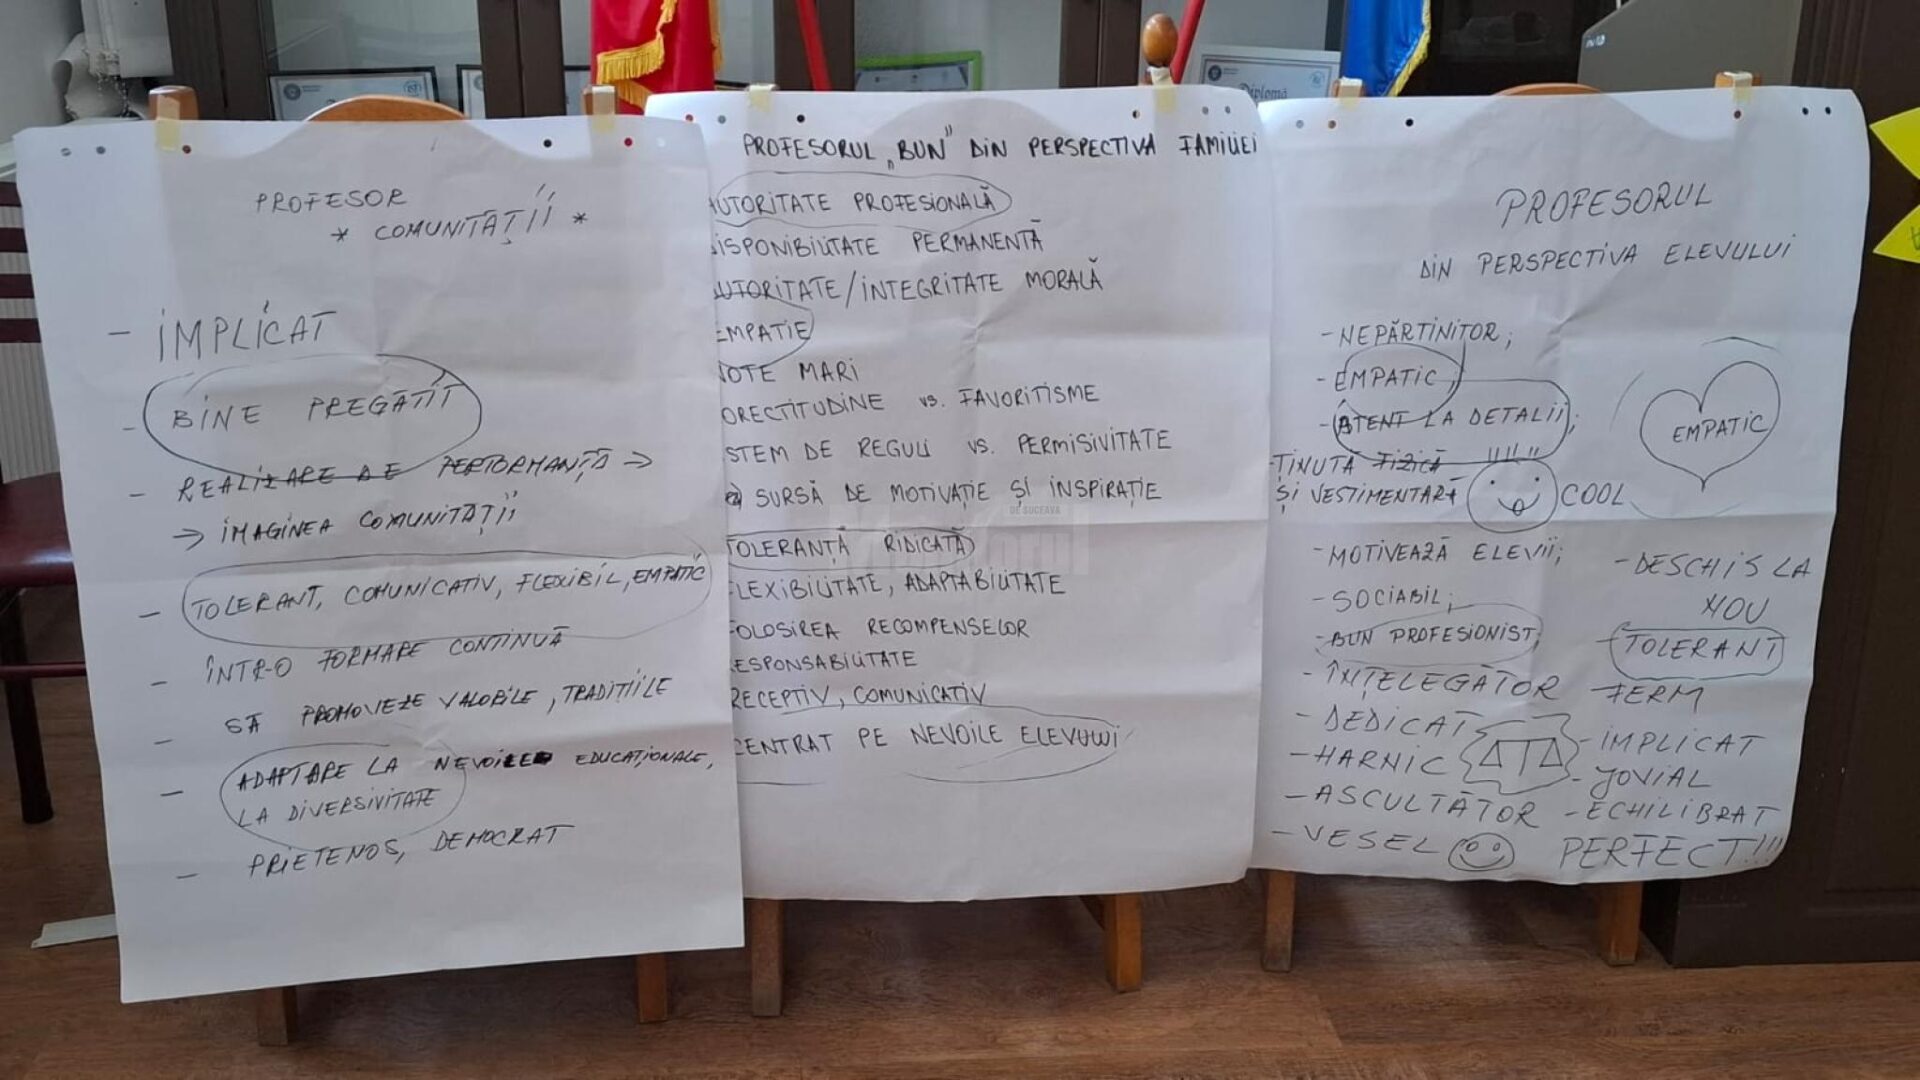 PROFESOR
* COMUNITĂȚII *
- IMPLICAT
- BINE PREGĂTIT
- REALIZARE DE PERFORMANȚĂ →
→ IMAGINEA COMUNITĂȚII
- TOLERANT, COMUNICATIV, FLEXIBIL, EMPATIC
- ÎNTR-O FORMARE CONTINUĂ
- SĂ PROMOVEZE VALORILE, TRADIȚIILE
- ADAPTARE LA NEVOILE EDUCAȚIONALE,
LA DIVERSIVITATE
- PRIETENOS, DEMOCRAT
PROFESORUL „BUN” DIN PERSPECTIVA FAMILIEI
UTORITATE PROFESIONALĂ
ISPONIBILITATE PERMANENTĂ
UTORITATE/INTEGRITATE MORALĂ
EMPATIE
NOTE MARI
ORECTITUDINE vs. FAVORITISME
STEM DE REGULI vs. PERMISIVITATE
SURSĂ DE MOTIVAȚIE ȘI INSPIRAȚIE
TOLERANȚĂ RIDICATĂ
LEXIBILITATE, ADAPTABILITATE
FOLOSIREA RECOMPENSELOR
ESPONSABILITATE
RECEPTIV, COMUNICATIV
CENTRAT PE NEVOILE ELEVULUI
PROFESORUL
DIN PERSPECTIVA ELEVULUI
- NEPĂRTINITOR;
- EMPATIC;
- ATENT LA DETALII;
-ȚINUTĂ FIZICĂ !!!!!
ȘI VESTIMENTARĂ COOL
EMPATIC
- MOTIVEAZĂ ELEVII;
- SOCIABIL;
- BUN PROFESIONIST;
- ÎNȚELEGĂTOR
- DEDICAT
- HARNIC
- ASCULTĂTOR
- VESEL
- DESCHIS LA
NOU
- TOLERANT
- FERM
- IMPLICAT
- JOVIAL
- ECHILIBRAT
PERFECT!!!!
Diplomă
Monitorul
DE SUCEAVA